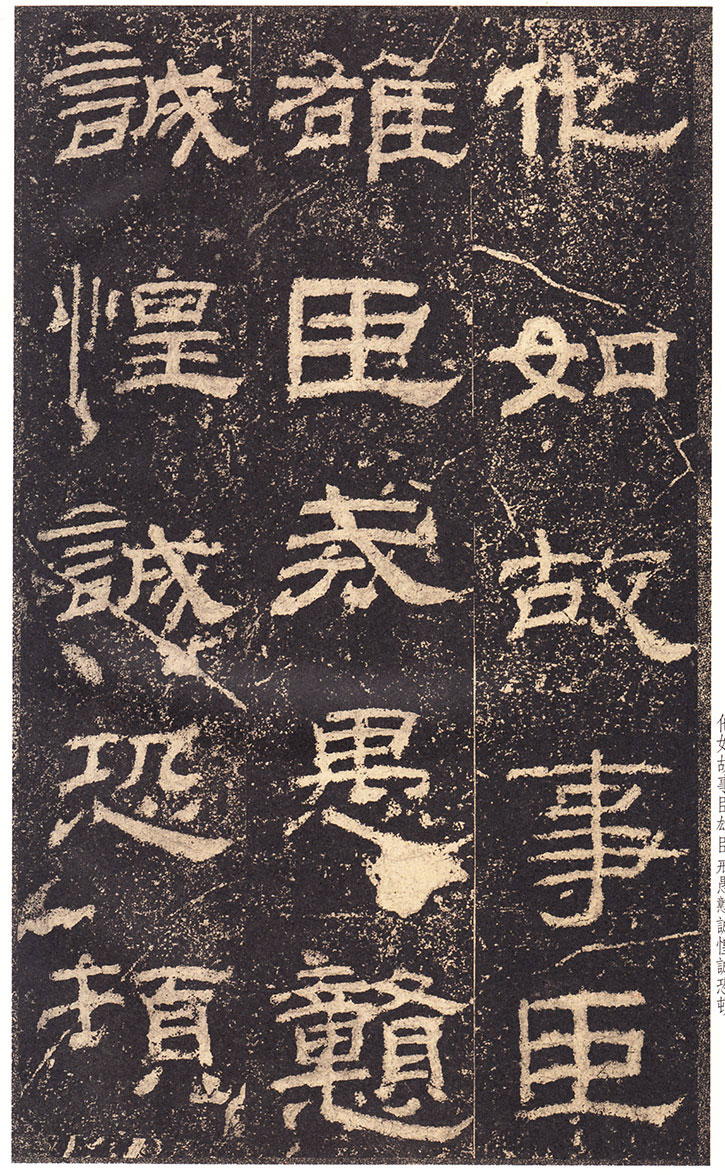 他如故事臣
雄臣戒愚戇
誠惶誠恐頓
他如故事臣雄臣愚戇誠惶誠恐頓